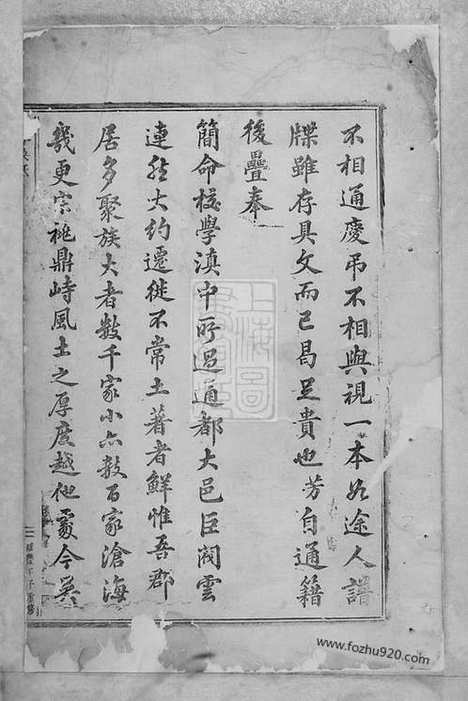 不相通慶弔不相與視一本如途人譜
牒雖存具文而已曷足貴也芳自通籍
後疊奉
簡命校學滇中所過通都大邑臣閥雲
連然大約遷徙不常土著者鮮惟吾郡
居多聚族大者數千家小亦數百家滄海
幾更宗祧鼎峙風土之厚度越他處今吳
上海圖
www.fozhu920.com